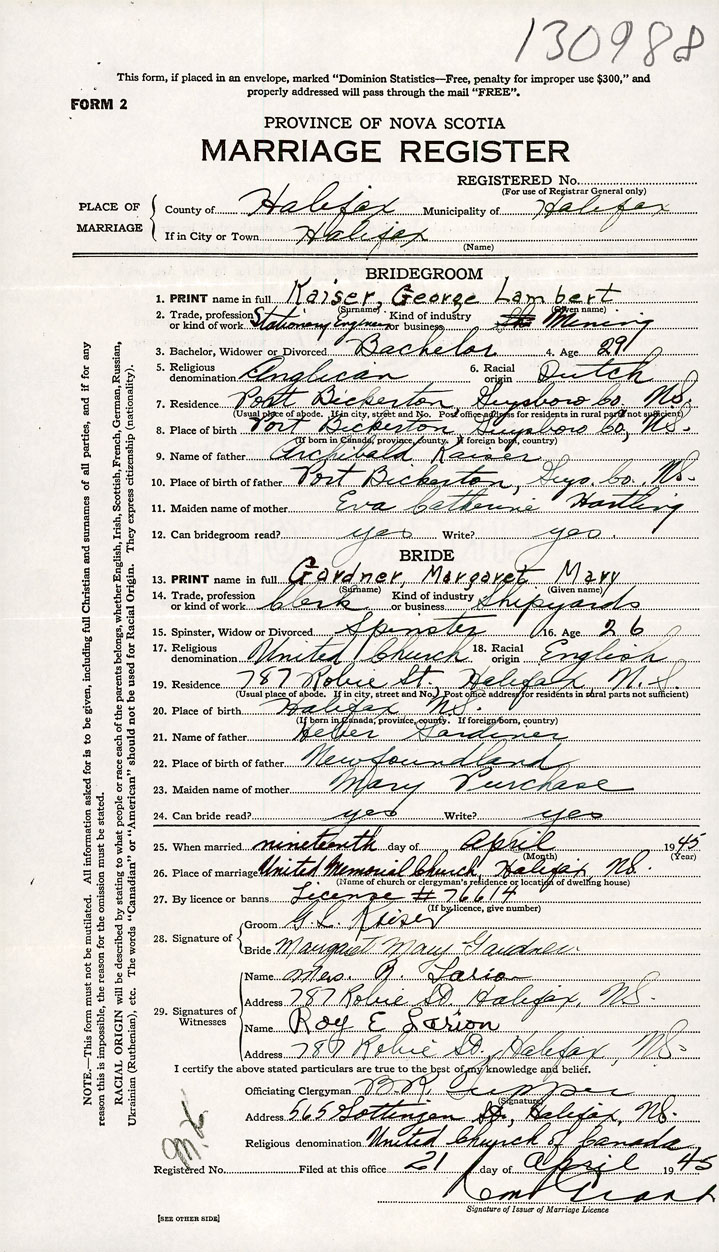 130988
This form, if placed in an envelope, marked "Dominion Statistics—Free, penalty for improper use $300," and
properly addressed will pass through the mail "FREE".
FORM 2
PROVINCE OF NOVA SCOTIA
MARRIAGE REGISTER
REGISTERED No.
(For use of Registrar General only)
PLACE OF MARRIAGE
County of Halifax Municipality of Halifax
If in City or Town Halifax
(Name)
BRIDEGROOM
1. PRINT name in full Kaiser, George Lambert
(Surname) (Given name)
2. Trade, profession or kind of work Stationary Engineer Kind of industry or business Mining
3. Bachelor, Widower or Divorced Bachelor 4. Age 29
5. Religious denomination Anglican 6. Racial origin Dutch
7. Residence Port Bickerton, Guysboro Co, NS.
(Usual place of abode. If in city, street and No. Post office address for residents in rural parts not sufficient)
8. Place of birth Port Bickerton, Guysboro Co, NS.
(If born in Canada, province, county. If foreign born, country)
9. Name of father Archibald Kaiser
10. Place of birth of father Port Bickerton, Guys. Co. NS.
11. Maiden name of mother Eva Catherine Hartling
12. Can bridegroom read? yes Write? yes.
BRIDE
13. PRINT name in full Gardner, Margaret Mary
(Surname) (Given name)
14. Trade, profession or kind of work Clerk Kind of industry or business Shipyards
15. Spinster, Widow or Divorced Spinster 16. Age 26
17. Religious denomination United Church 18. Racial origin English
19. Residence 787 Robie St. Halifax, N.S.
(Usual place of abode. If in city, street and No. Post office address for residents in rural parts not sufficient)
20. Place of birth Halifax NS.
(If born in Canada, province, county. If foreign born, country)
21. Name of father Heber Gardiner
22. Place of birth of father Newfoundland
23. Maiden name of mother Mary Purchase
24. Can bride read? yes Write? yes
25. When married nineteenth day of April 1945
(Month) (Year)
26. Place of marriage United Memorial Church, Halifax, NS.
(Name of church or clergyman's residence or location of dwelling house)
27. By licence or banns License #76614
(If by licence, give number)
28. Signature of
Groom G. L. Kaiser
Bride Margaret Mary Gardner
29. Signatures of Witnesses
Name Mrs. R.
Address 787 Robie St. Halifax, NS.
Name Roy E
Address 787 Robie St., Halifax, NS.
I certify the above stated particulars are true to the best of my knowledge and belief.
Officiating Clergyman B.R. Tupper
(Signature)
Address 565 Gottingen St., Halifax, NS.
Religious denomination United Church of Canada
Registered No. Filed at this office 21 day of April 1945
Grant
Signature of Issuer of Marriage Licence
[SEE OTHER SIDE]
NOTE.—This form must not be mutilated. All information asked for is to be given, including full Christian and surnames of all parties, and if for any
reason this is impossible, the reason for the omission must be stated.
RACIAL ORIGIN will be described by stating to what people or race each of the parents belongs, whether English, Irish, Scottish, French, German, Russian,
Ukrainian (Ruthenian), etc. The words "Canadian" or "American" should not be used for Racial Origin. They express citizenship (nationality).